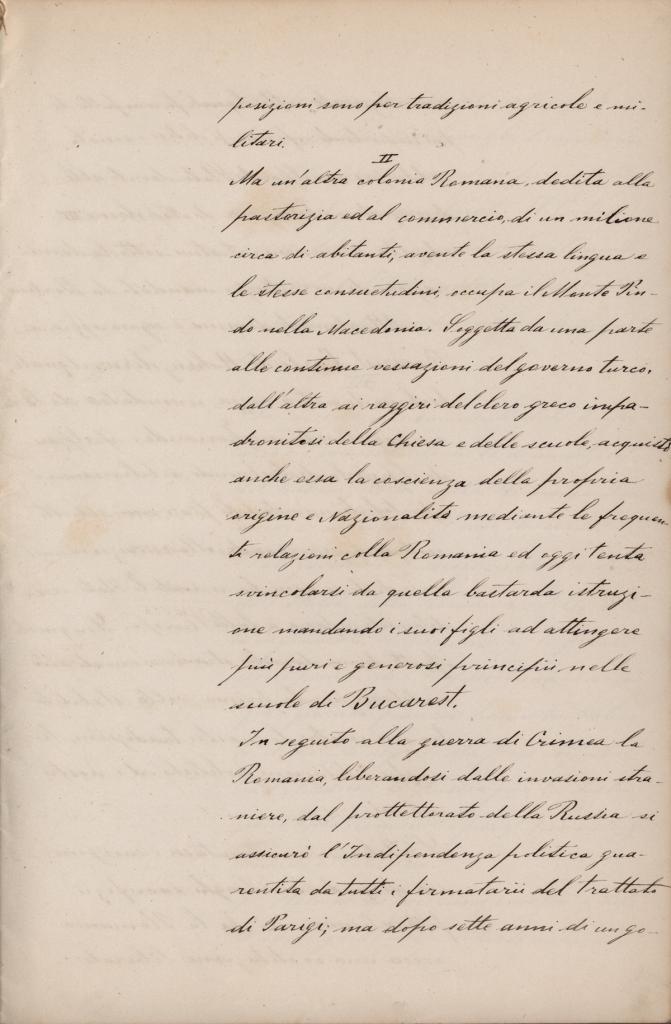 posizioni sono per tradizioni agricole e mi-
litari.
II
Ma un'altra colonia Romana, dedita alla
pastorizia ed al commercio, di un milione
circa di abitanti, avente la stessa lingua e
le stesse consuetudini, occupa il Monte Pin-
do nella Macedonia. Soggetta da una parte
alle continue vessazioni del governo turco,
dall'altra ai raggiri del clero greco impa-
dronitosi della Chiesa e delle scuole, acquistò
anche essa la coscienza della propria
origine e Nazionalità mediante le frequen-
ti relazioni colla Romania ed oggi tenta
svincolarsi da quella bastarda istruzi-
one mandando i suoi figli ad attingere
più puri e generosi principii nelle
scuole di Bucarest.
In seguito alla guerra di Crimea la
Romania, liberandosi dalle invasioni stra-
niere, dal prottettorato della Russia si
assicurò l'Indipendenza politica gua-
rentita da tutti i firmatarii del trattato
di Parigi; ma dopo sette anni di un go-